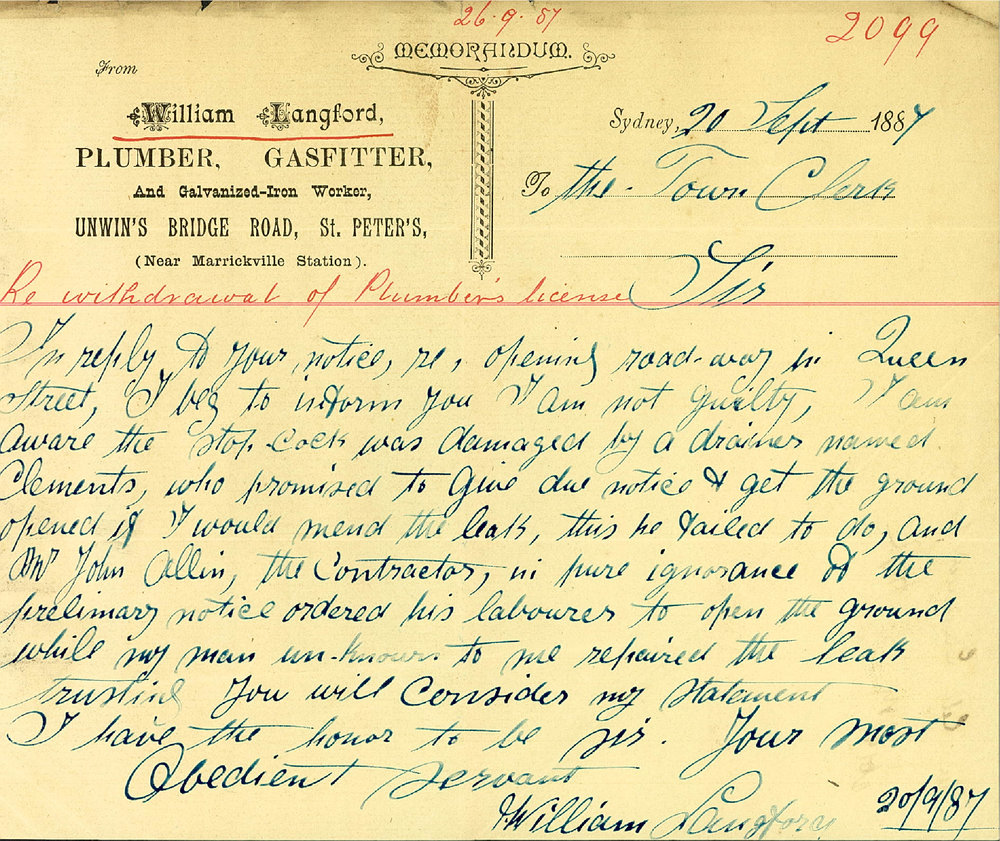 26.9.87
2099
MEMORANDUM.
From
William Langford,
PLUMBER, GASFITTER,
And Galvanized-Iron Worker,
UNWIN'S BRIDGE ROAD, St. PETER'S,
(Near Marrickville Station).
Sydney, 20 Sept 1887
To the Town Clerk
Re withdrawal of Plumber's license
Sir
In reply to your notice, re, opening road-way in Queen
Street, I beg to inform you I am not guilty, I am
aware the stop-cock was damaged by a drainer named
Clements, who promised to give due notice & get the ground
opened if I would mend the leak, this he failed to do, and
Mr John Allin, the Contractor, in pure ignorance of the
prelimary notice ordered his labourer to open the ground
while my man un-known to me repaired the leak
trusting you will consider my statement
I have the honor to be sir. Your most
Obedient servant
William Langford
20/9/87